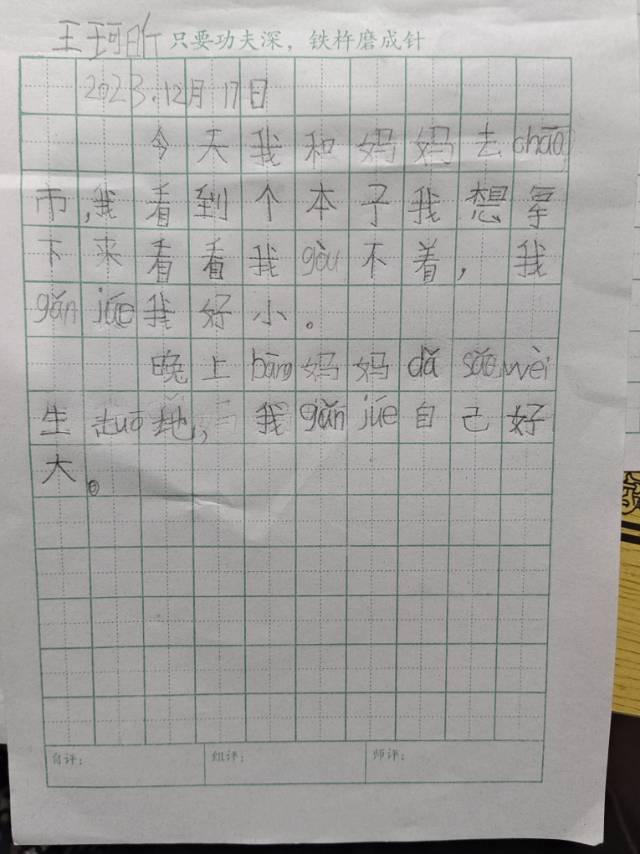 王珂昕 只要功夫深，铁杵磨成针
2023.12月17日
今天我和妈妈去chāo
市,我看到个本子我想拿
下来看看我gòu不着，我
gǎn júe我好小。
晚上bāng妈妈dǎ sǎo wèi
生 tuō地,我gǎn júe自己好
大。
自评：
组评：
师评：